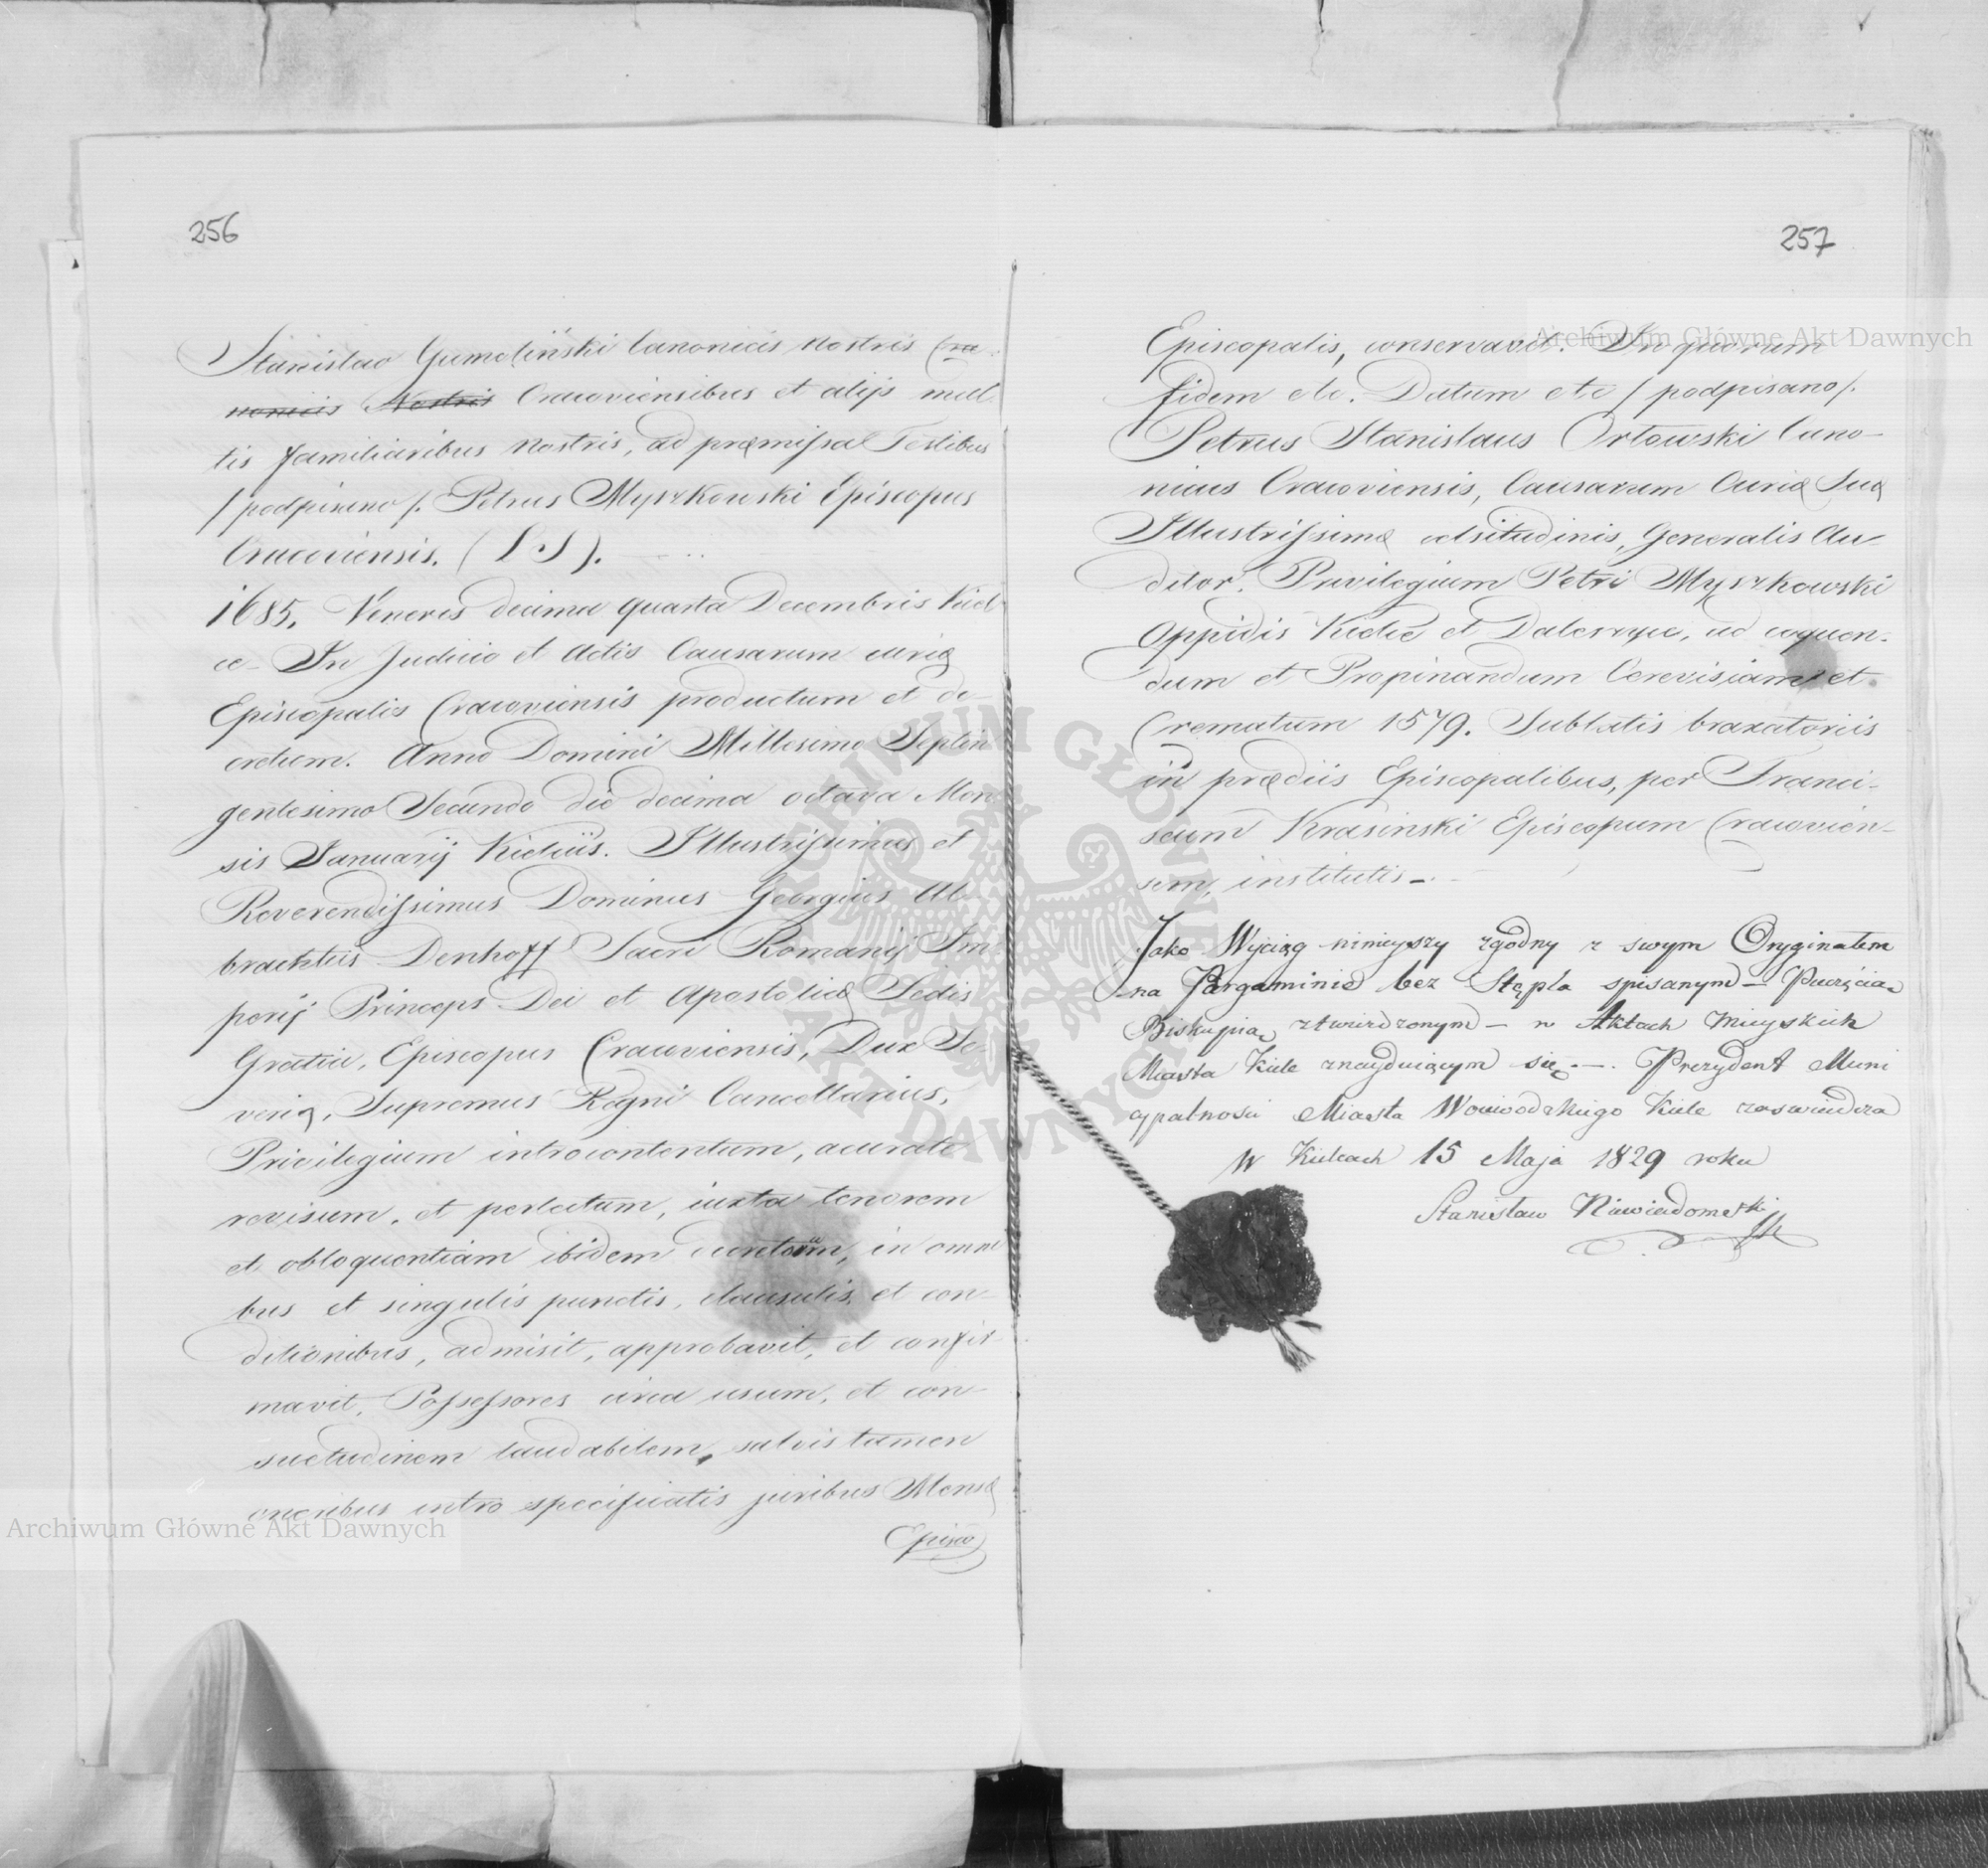 256
Stanislao Gumoliński Canonicis nostris Cra-
nonicis Nostris Cracoviensibus et alijs mul
tis familiaribus nostris, ad præmissa Testibus
/podpisano/. Petrus Myszkowski Episcopus
Cracoviensis. (LS).
1685. Veneris decima quarta Decembris Kiel
ce In Judicio et Actis Causarum curiæ
Episcopalis Cracoviensis productum et de-
cretum. Anno Domini Millesimo Septin
gentesimo Secundo die decima octava Men
sis Januarij Kielciis. Illustrissimus et
Reverendissimus Dominus Georgius Al-
brachtus Denhoff Sacri Romanij Im
perij Princeps Dei et Apostolicæ Sedis
Gratia, Episcopus Cracoviensis, Dux Se-
veriæ, Supremus Regni Cancellarius,
Privilegium introcontentum, accurate
revisum, et perlectum, iuxta tenorem
et obloquentiam ibidem in omni
bus et singulis punctis, clausulis, et con-
ditionibus, admisit, approbavit, et confir-
mavit, Possessores circa usum, et con-
suetudinem laudabilem, salvis tamen
oneribus intro specificatis juribus Mensæ
Episco
257
Episcopalis, conservavit. In quorum
fidem etc. Datum etc /podpisano/.
Petrus Stanislaus Orłowski Cano-
nicus Cracoviensis, Causarum Curiæ Suæ
Illustrissimæ celsitudinis, Generalis Au-
ditor. Privilegium Petri Myszkowski
Oppidis Kielce et Daleszyce, ad coquen-
dum et Propinandum Cerevisiam et
Crematum 1579. Sublatis braxatoriis
in prædiis Episcopalibus, per Franci-
scum Krasinski Episcopum Cracovien-
sem, institutis
Jako Wyciąg ninieyszy zgodny z swym Oryginałem
na Pargaminie bez Stępla spisanym – Pieczęcią
Biskupią ztwierdzonym – w Aktach Mieyskich
Miasta Kielc znayduiącym się. Prezydent Muni
cypalności Miasta Woiewodzkiego Kielc zaswiadcza
w Kielcach 15 Maja 1829 roku
Stanisław Niewiadomski
Archiwum Główne Akt Dawnych
Archiwum Główne Akt Dawnych
ARCHIWUM GŁÓWNE AKT DAWNYCH